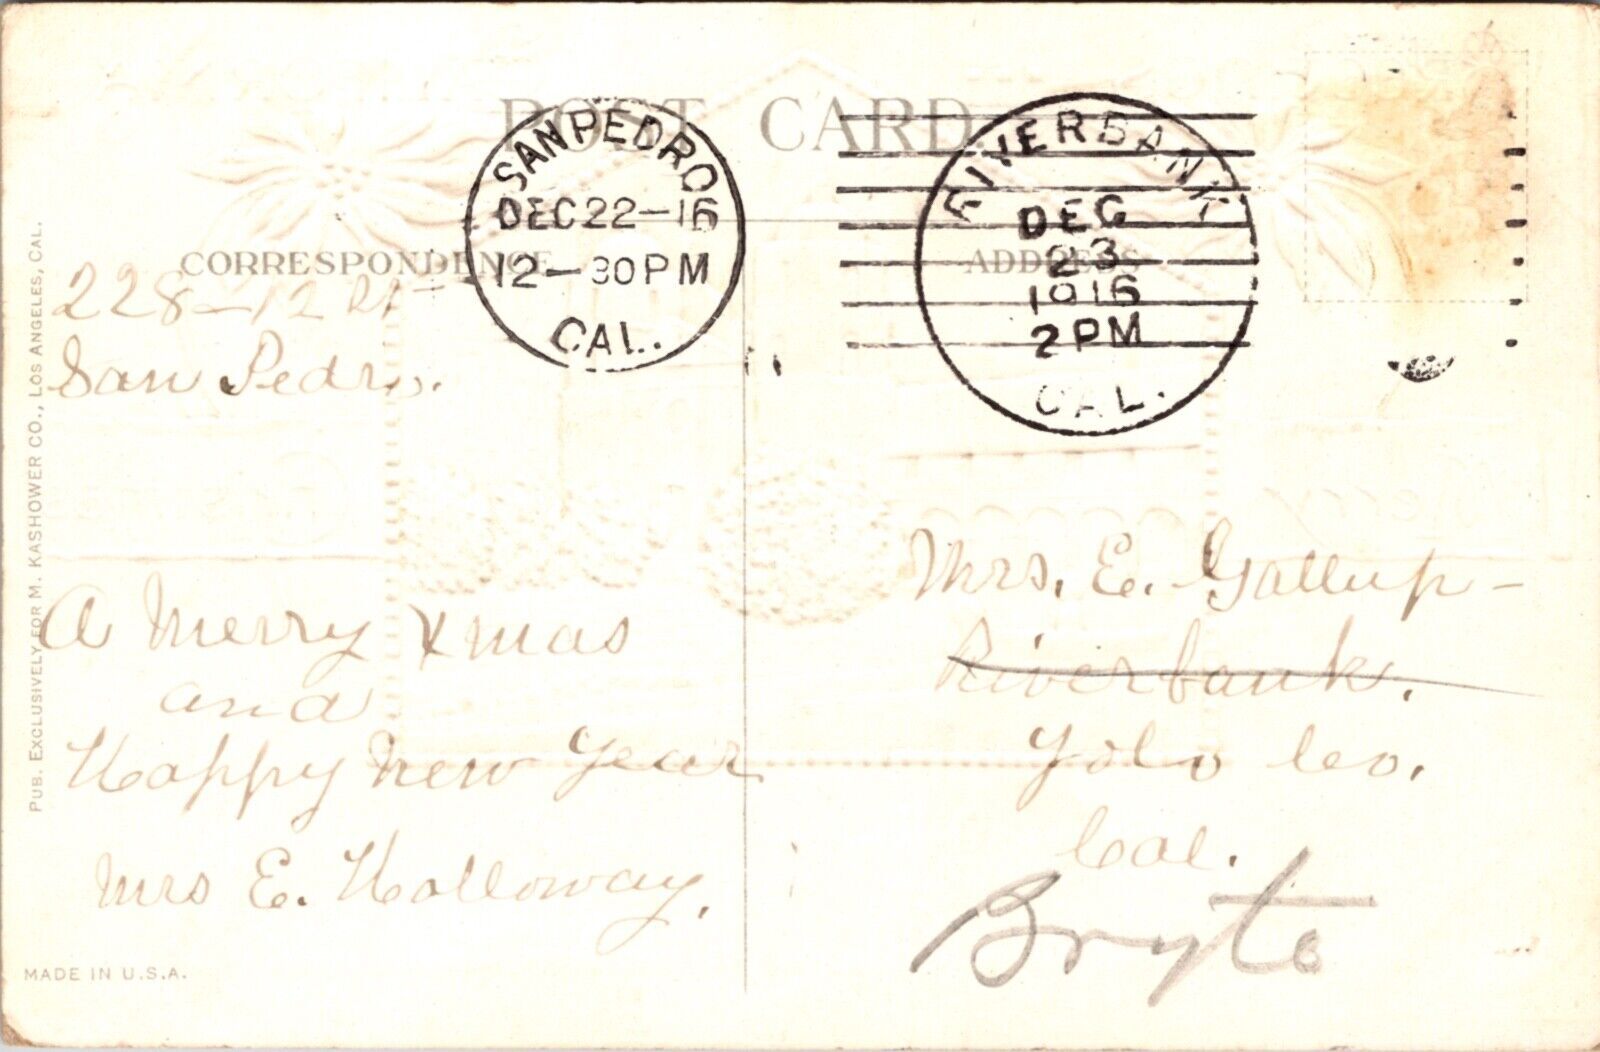 POST CARD
SAN PEDRO
DEC 22-16
12-30PM
CAL.
RIVERBANK
DEC
23
1916
2PM
CAL.
CORRESPONDENCE
ADDRESS
228-12
San Pedro.
A Merry Xmas
and
Happy New Year
Mrs E. Holloway.
Mrs. E. Gallup-
Riverbank.
Yolo Co.
Cal.
Bryte
PUB. EXCLUSIVELY FOR M. KASHOWER CO., LOS ANGELES, CAL.
MADE IN U.S.A.